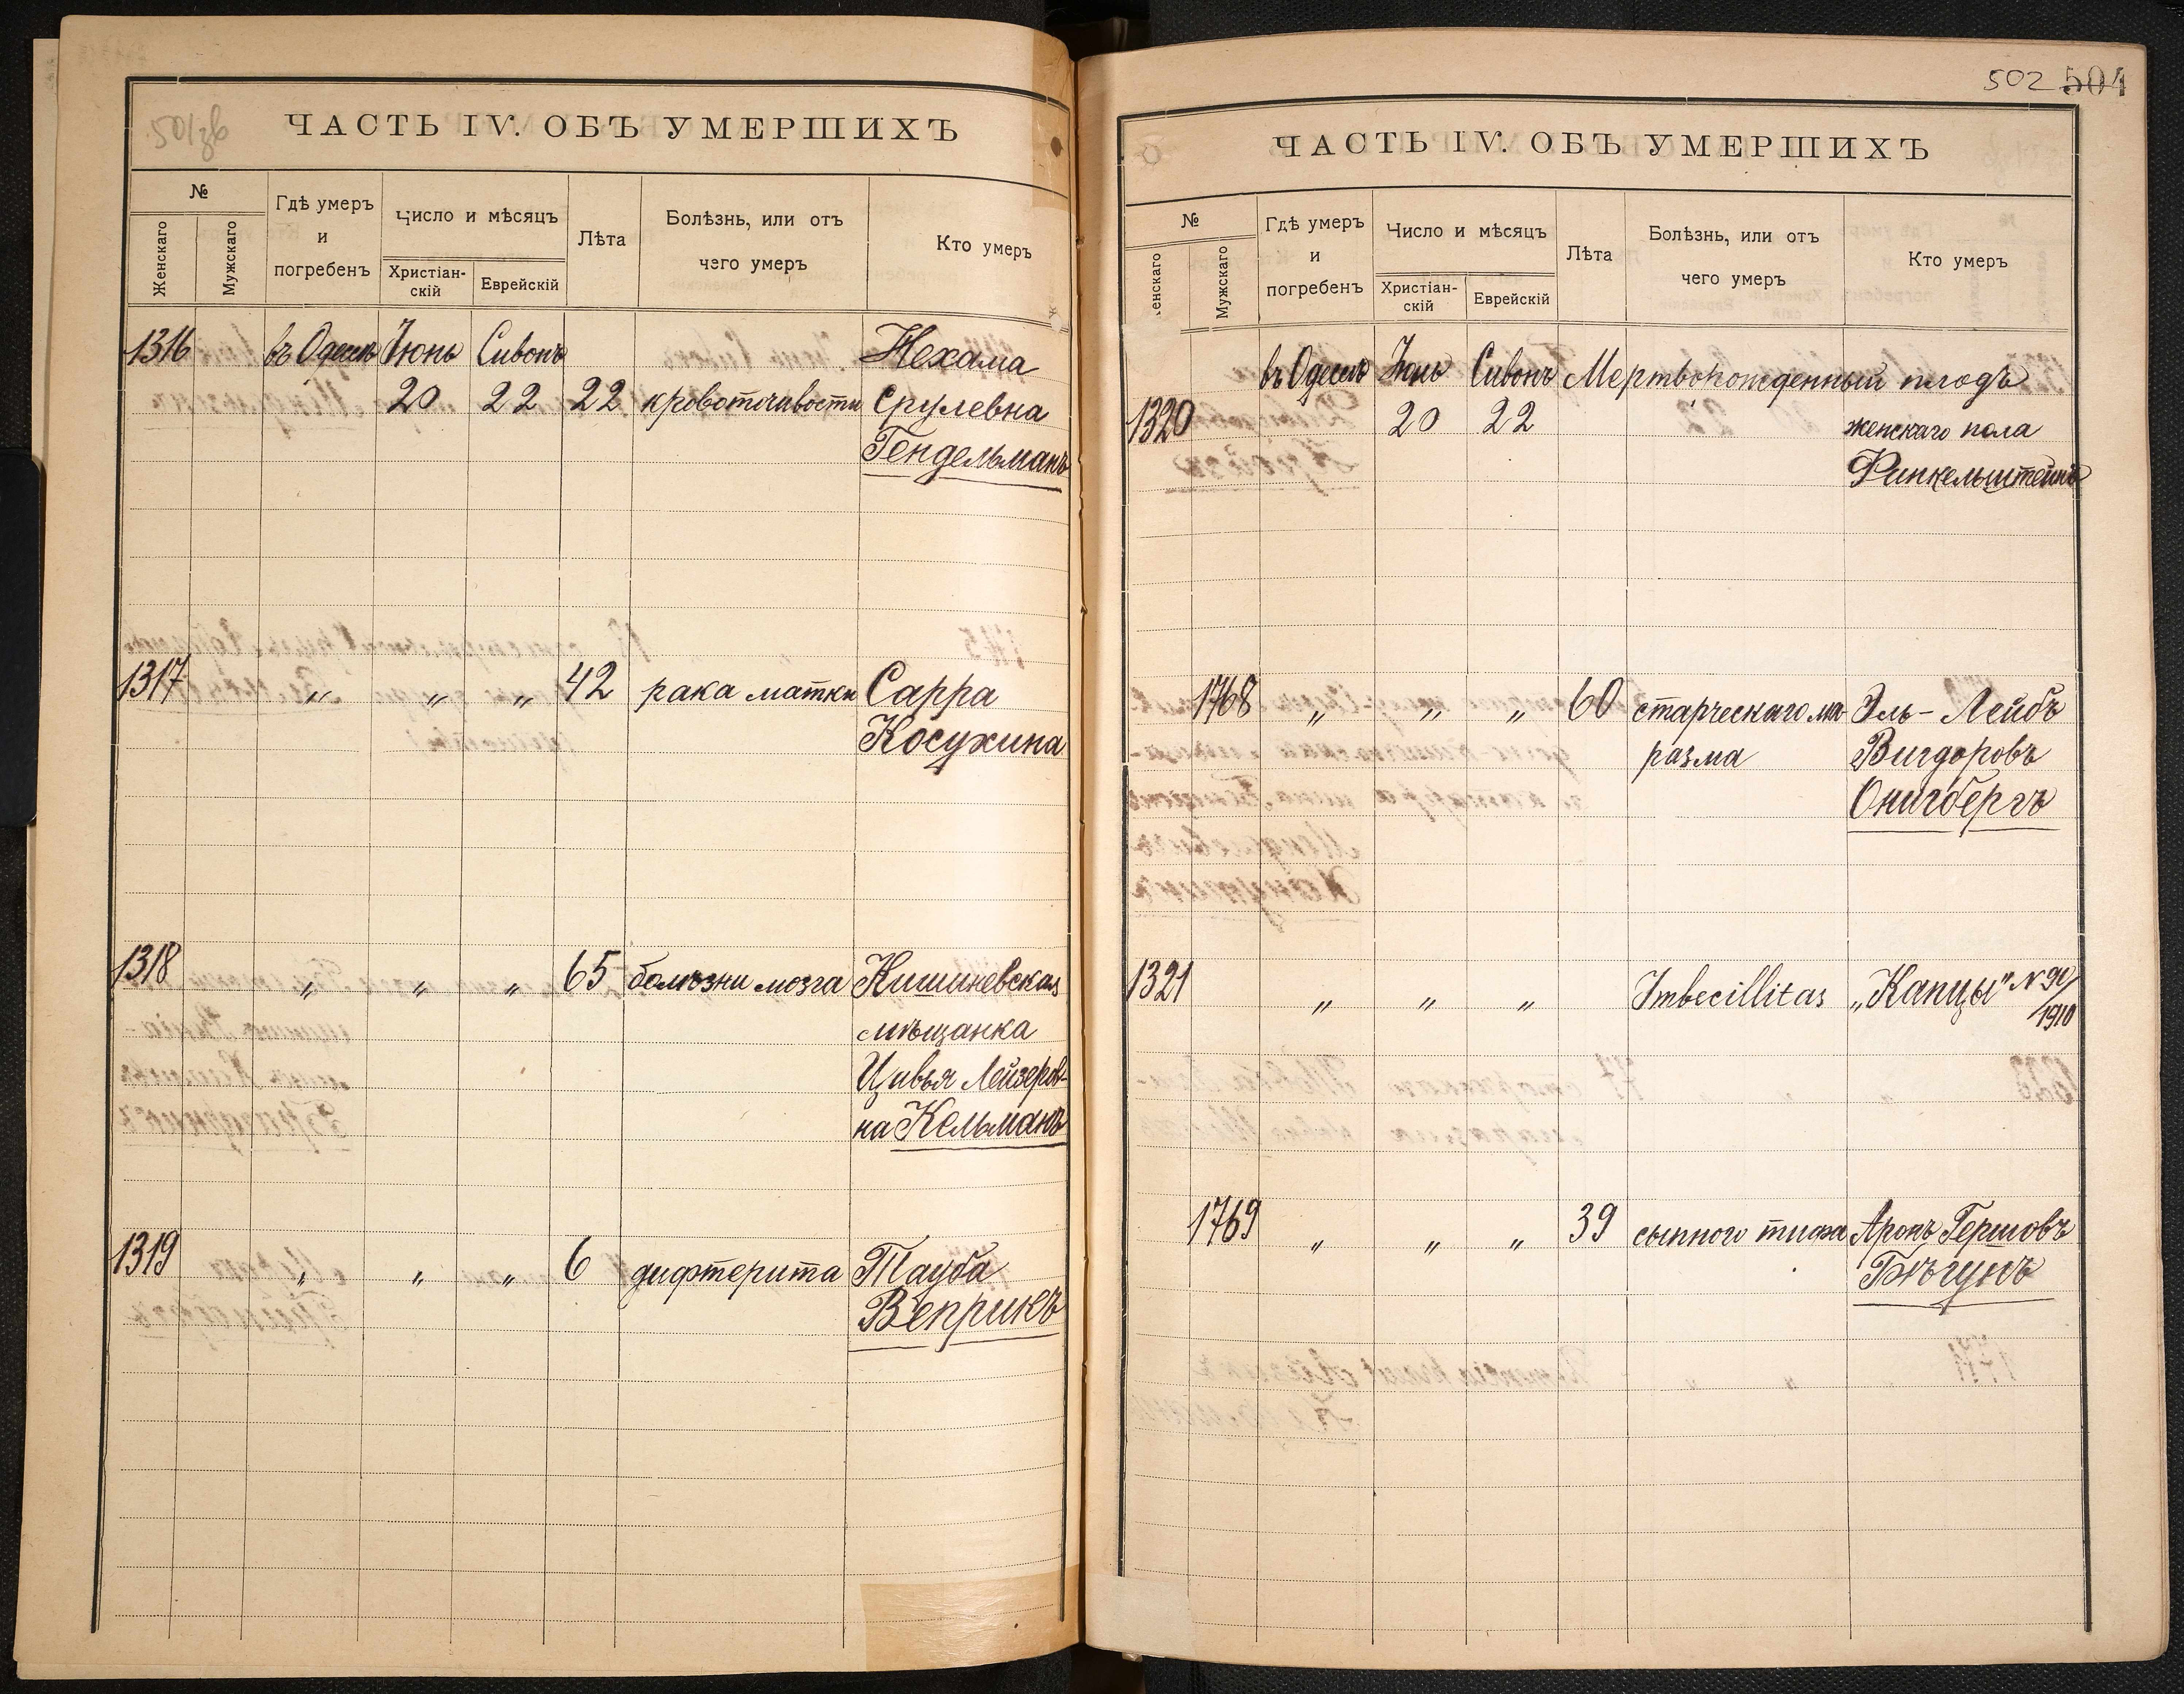 501 зв
ЧАСТЬ IV. ОБЪ УМЕРШИХЪ
№
Женскаго
Мужскаго
Гдѣ умеръ
и
погребенъ
Число и мѣсяцъ
Христіан-
скій
Еврейскій
Лѣта
Болѣзнь, или отъ
чего умеръ
Кто умеръ
1316 въ Одессѣ Іюнь Сивонъ Нехама
20 22 22 кровоточивости Срулевна
Гендельманъ
1317 „ „ „ 42 рака матки Сарра
Косухина
1318 „ „ „ 65 болѣзни мозга Кишиневская
мѣщанка
Цивья Лейзеров-
на Кельманъ
1319 „ „ „ 6 дифтерита Тауба
Веприкъ
502 504
ЧАСТЬ IV. ОБЪ УМЕРШИХЪ
№
енскаго
Мужскаго
Гдѣ умеръ
и
погребенъ
Число и мѣсяцъ
Христіан-
скій
Еврейскій
Лѣта
Болѣзнь, или отъ
чего умеръ
Кто умеръ
въ Одессѣ Іюнь Сивонъ Мертворожденный плодъ
1320 20 22 женскаго пола
Финкельштейнъ
1768 „ „ „ 60 старческаго ма Эль-Лейбъ
разма Вигдоровъ
Онигбергъ
1321 „ „ „ Imbecillitas „Капцы" № 90/
1910
1769 „ „ „ 39 сыпного тифа Аронъ Гершовъ
Бѣгунъ